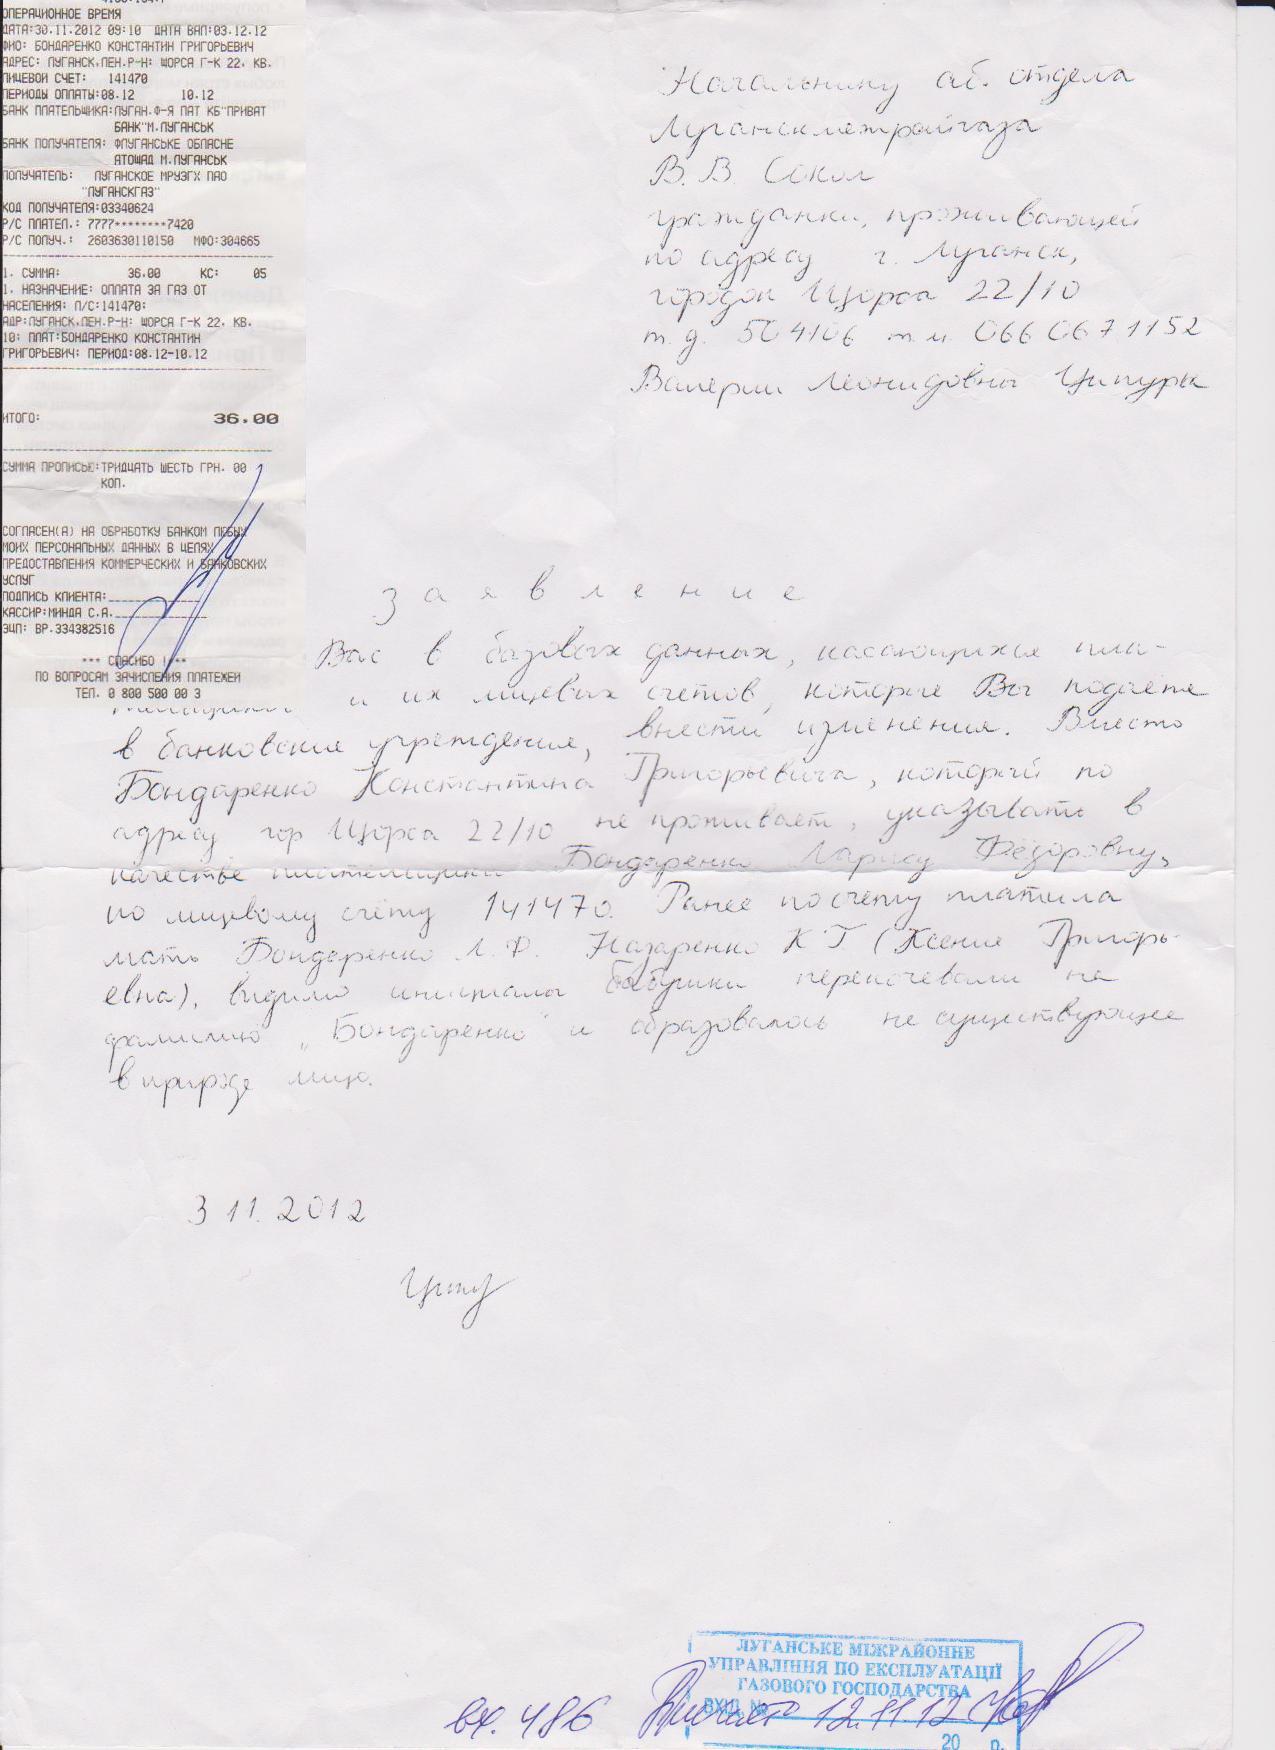 ОПЕРАЦИОННОЕ ВРЕМЯ
ДАТА:30.11.2012 09:10 ДАТА ВАЛ:03.12.12
ФИО: БОНДАРЕНКО КОНСТАНТИН ГРИГОРЬЕВИЧ
АДРЕС: ЛУГАНСК,ЛЕН.Р-Н: ЩОРСА Г-К 22, КВ.
ЛИЦЕВОЙ СЧЕТ: 141470
ПЕРИОДЫ ОПЛАТЫ:08.12 10.12
БАНК ПЛАТЕЛЬЩИКА:ЛУГАН.Ф-Я ПАТ КБ"ПРИВАТ
БАНК"М.ЛУГАНСЬК
БАНК ПОЛУЧАТЕЛЯ: ФЛУГАНСЬКЕ ОБЛАСНЕ
АТОЩАД М.ЛУГАНСЬК
ПОЛУЧАТЕЛЬ: ЛУГАНСКОЕ МРУЭГХ ПАО
"ЛУГАНСКГАЗ"
КОД ПОЛУЧАТЕЛЯ:03340624
Р/С ПЛАТЕЛ.: 7777********7420
Р/С ПОЛУЧ.: 2603630110150 МФО:304665
1. СУММА: 36.00 КС: 05
1. НАЗНАЧЕНИЕ: ОПЛАТА ЗА ГАЗ ОТ
НАСЕЛЕНИЯ: Л/С:141470:
АДР:ЛУГАНСК,ЛЕН.Р-Н: ЩОРСА Г-К 22, КВ.
10: ПЛАТ:БОНДАРЕНКО КОНСТАНТИН
ГРИГОРЬЕВИЧ: ПЕРИОД:08.12-10.12
ИТОГО: 36.00
СУММА ПРОПИСЬЮ:ТРИДЦАТЬ ШЕСТЬ ГРН. 00
КОП.
СОГЛАСЕН(А) НА ОБРАБОТКУ БАНКОМ ЛЮБЫХ
МОИХ ПЕРСОНАЛЬНЫХ ДАННЫХ В ЦЕЛЯХ
ПРЕДОСТАВЛЕНИЯ КОММЕРЧЕСКИХ И БАНКОВСКИХ
УСЛУГ
ПОДПИСЬ КЛИЕНТА:
КАССИР:МИНДА С.А.
ЭЦП: ВР.334382516
*** СПАСИБО !***
ПО ВОПРОСАМ ЗАЧИСЛЕНИЯ ПЛАТЕЖЕЙ
ТЕЛ. 0 800 500 00 3
Начальнику аб. отдела
Луганскмежрайгаза
В. В. Сокол
гражданки, проживающей
по адресу г. Луганск,
городок Щорса 22/10
т. д. 504106 т. м 0660671152
Валерии Леонидовны Ципуры
Заявление
Вас в базовых данных, касающихся пла-
и их лицевых счетов, которые Вы подаёте
в банковские учреждения, внести изменения. Вместо
Бондаренко Константина Григорьевича, который по
адресу гор Щорса 22/10 не проживает, указывать в
качестве плательщика Бондаренко Ларису Фёдоровну,
по лицевому счёту 141470. Ранее по счету платила
мать Бондаренко Л. Ф. Назаренко К Г (Ксения Григорь-
евна), видимо инициалы бабушки перекочевали на
фамилию „Бондаренко" и образовалось не существующее
в природе лицо.
3 11. 2012
ЛУГАНСЬКЕ МІЖРАЙОННЕ
УПРАВЛІННЯ ПО ЕКСПЛУАТАЦІЇ
ГАЗОВОГО ГОСПОДАРСТВА
ВХІД. №
вх. 486 12.11.12
20 р.